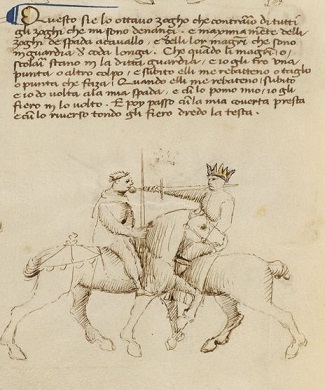 Questo sie lo ottavo zogho che contrario di tutti
gli zoghi che mi sono denançi. e maximamẽte delli
zoghi de spada acavallo, e delli lor magistri che sono
in guardia di coda longa. Che quãdo li magistri, o/
scolari stano in la ditta guardia, e io gli tro una
punta o altro colpo, e subito elli me rebatteno o taglio
o punta che faza/ Quando elli me rebateno/ subito
e io do volta ala mia spada, e cũ lo pomo mio, io gli
fiero in lo volto. E poy passo cũ la mia coverta presta
e cũ lo riverso tondo gli fiero dredo la testa.